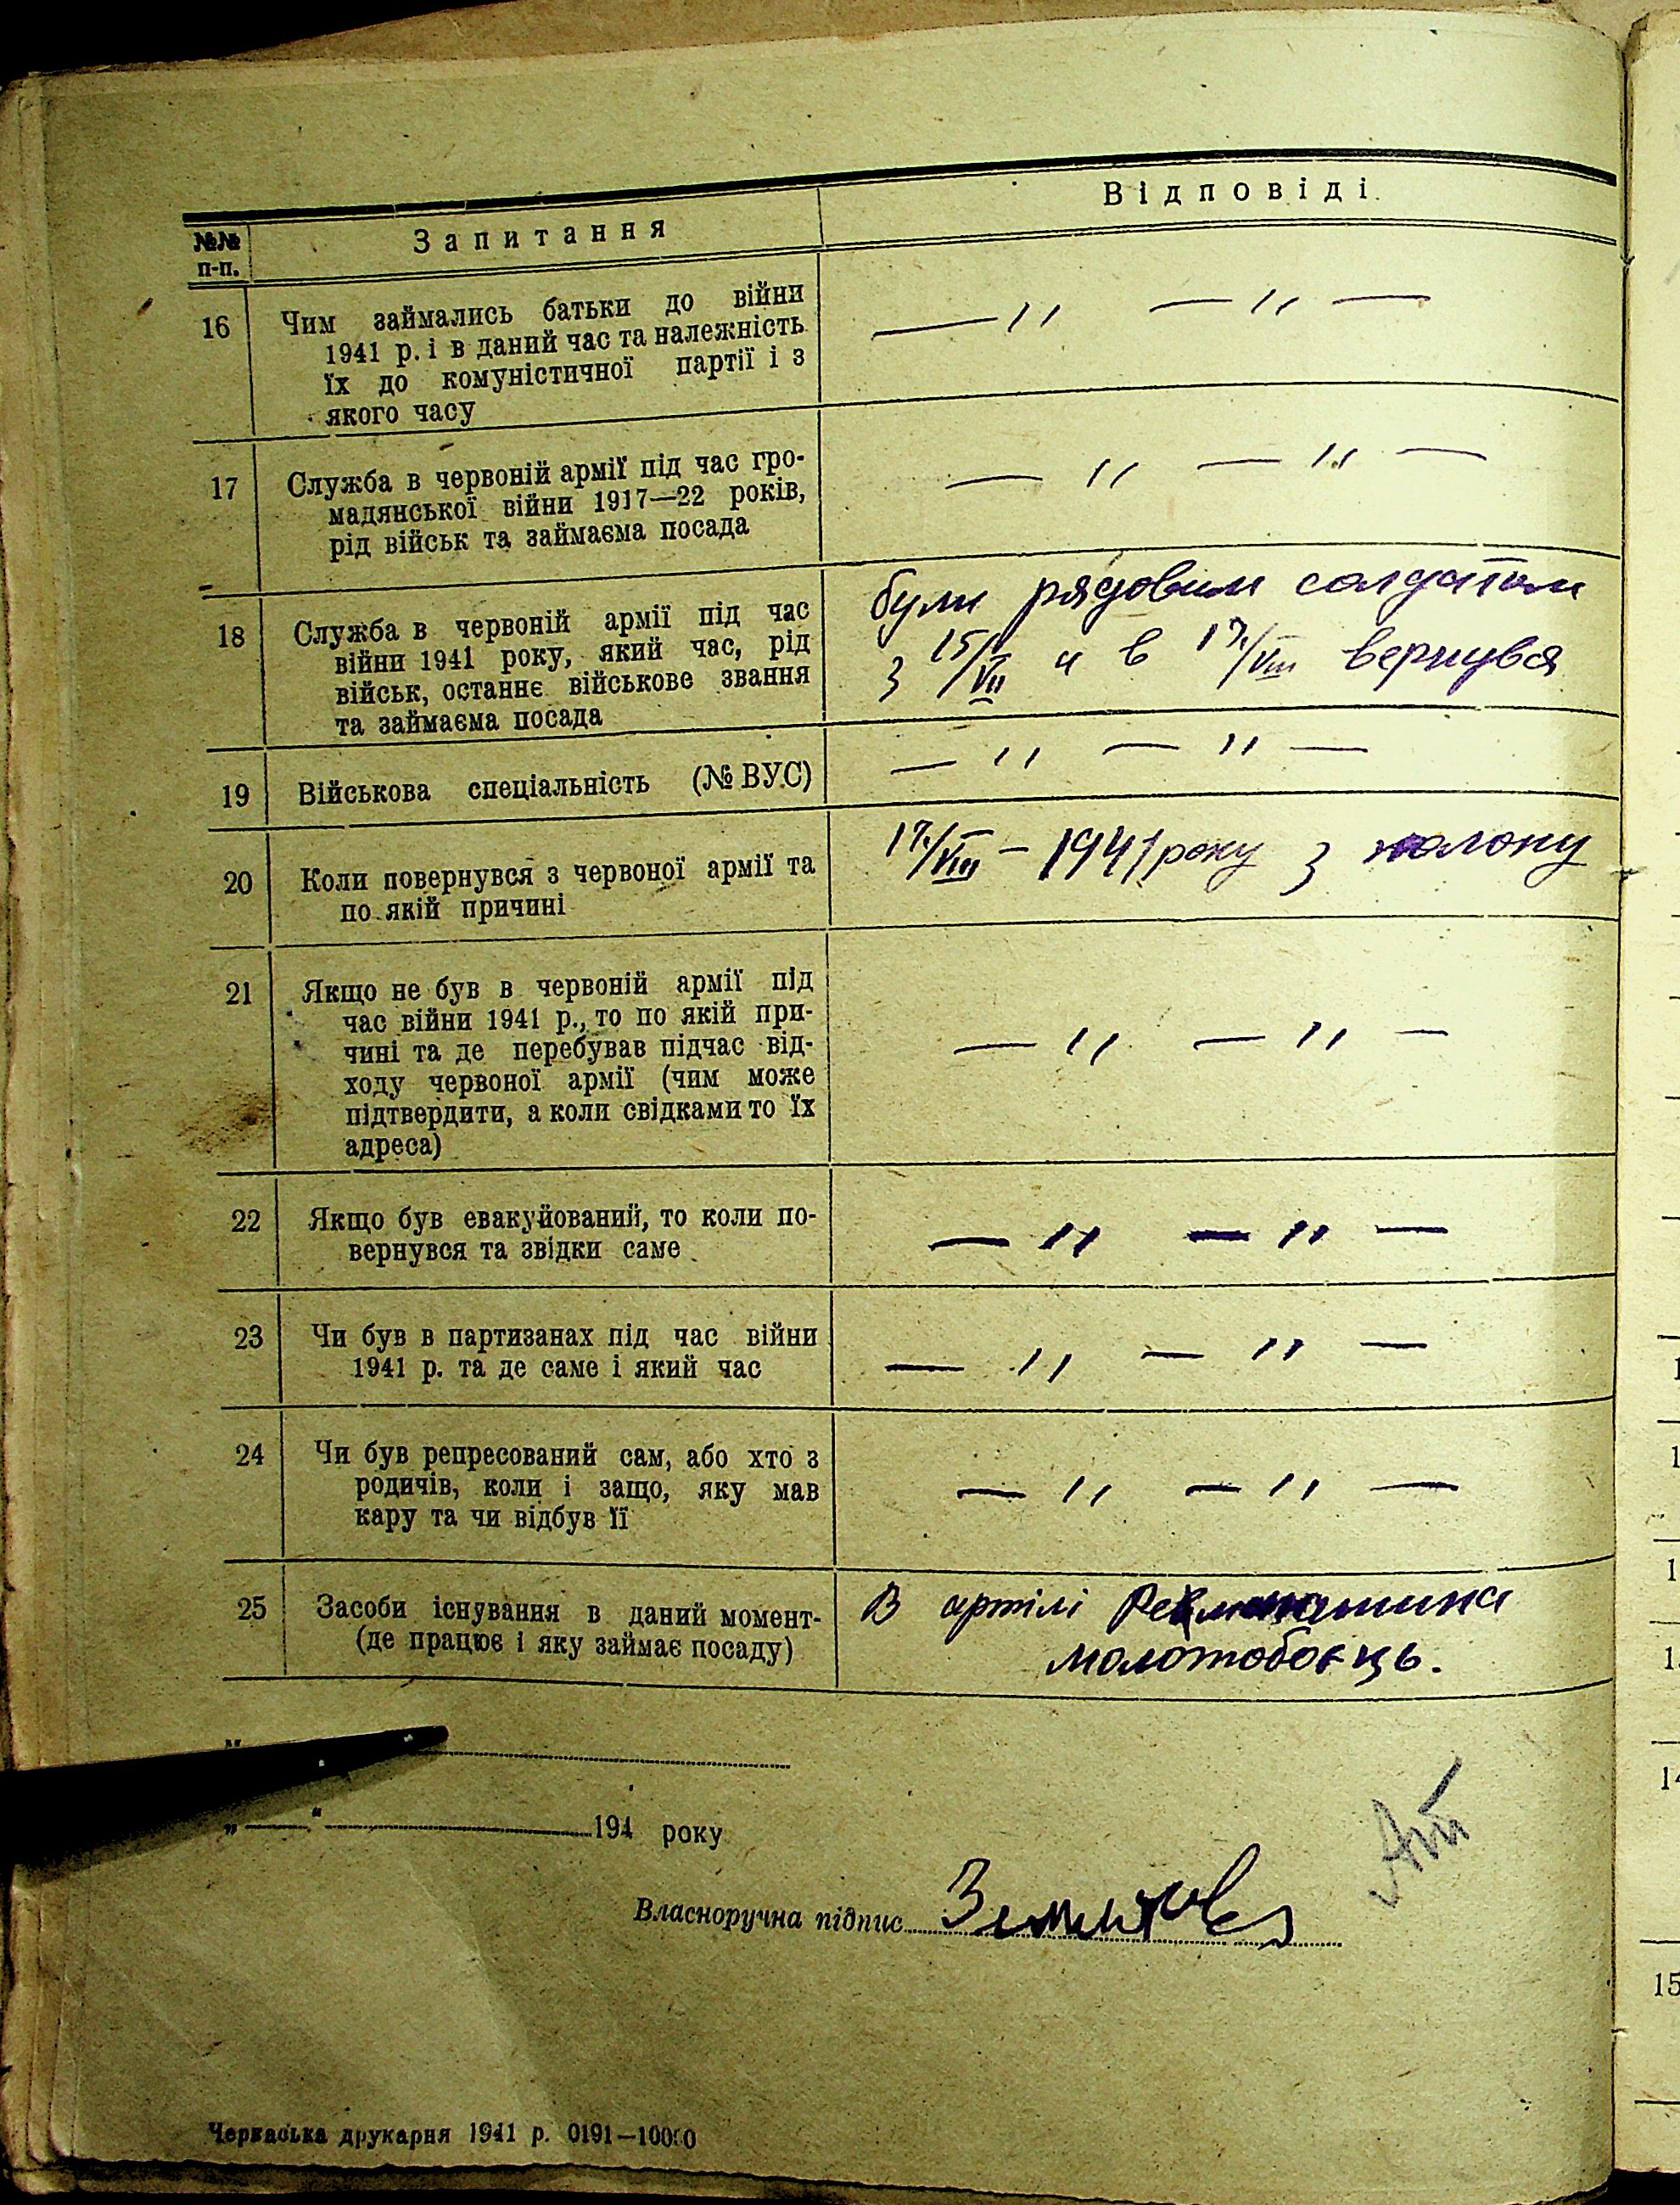 №№ п-п.
Запитання
Відповіді
16
Чим займались батьки до війни
1941 р. і в даний час та належність
їх до комуністичної партії і з
якого часу
— ,, — ,, —
17
Служба в червоній армії під час гро-
мадянської війни 1917—22 років,
рід військ та займаєма посада
— ,, — ,, —
18
Служба в червоній армії під час
війни 1941 року, який час, рід
військ, останнє військове звання
та займаєма посада
були рядовим солдатом
з 15/VII и в 17/VIII вернувся
19
Військова спеціальність (№ ВУС)
— ,, — ,, —
20
Коли повернувся з червоної армії та
по якій причині
17/VIII – 1941 року з полону
21
Якщо не був в червоній армії під
час війни 1941 р., то по якій при-
чині та де перебував підчас від-
ходу червоної армії (чим може
підтвердити, а коли свідками то їх
адреса)
— ,, — ,, —
22
Якщо був евакуйований, то коли по-
вернувся та звідки саме
— ,, — ,, —
23
Чи був в партизанах під час війни
1941 р. та де саме і який час
— ,, — ,, —
24
Чи був репресований сам, або хто з
родичів, коли і защо, яку мав
кару та чи відбув її
— ,, — ,, —
25
Засоби існування в даний момент-
(де працює і яку займає посаду)
В артілі
молотобоєць.
„ “ 194 року
Власноручна підпис
Черкаська друкарня 1941 р. 0191—10000